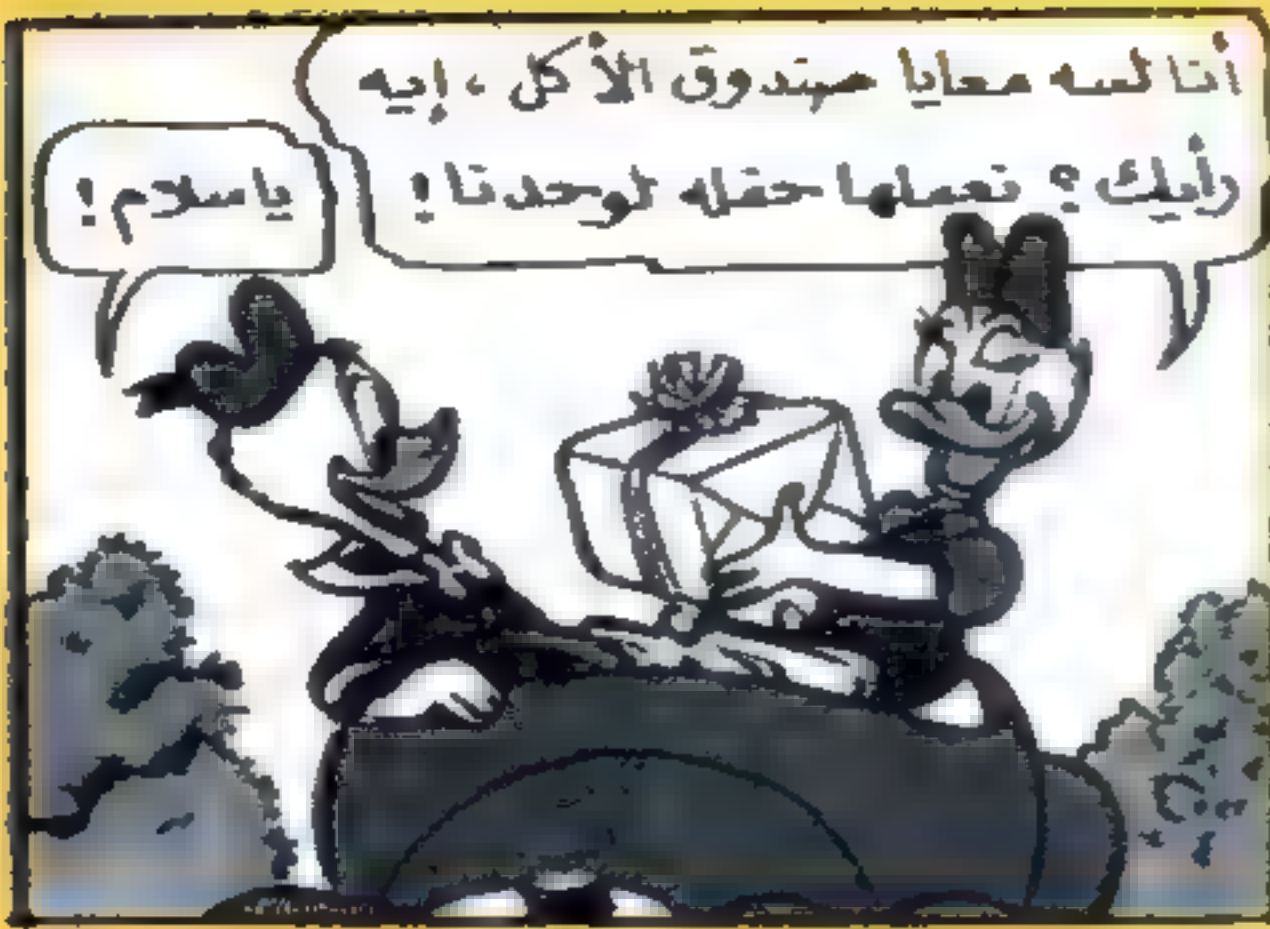 أنا لسه معايا صندوق الأكل ، إيه
رأيك ؟ نعملها حفله لوحدنا !
ياسلام !